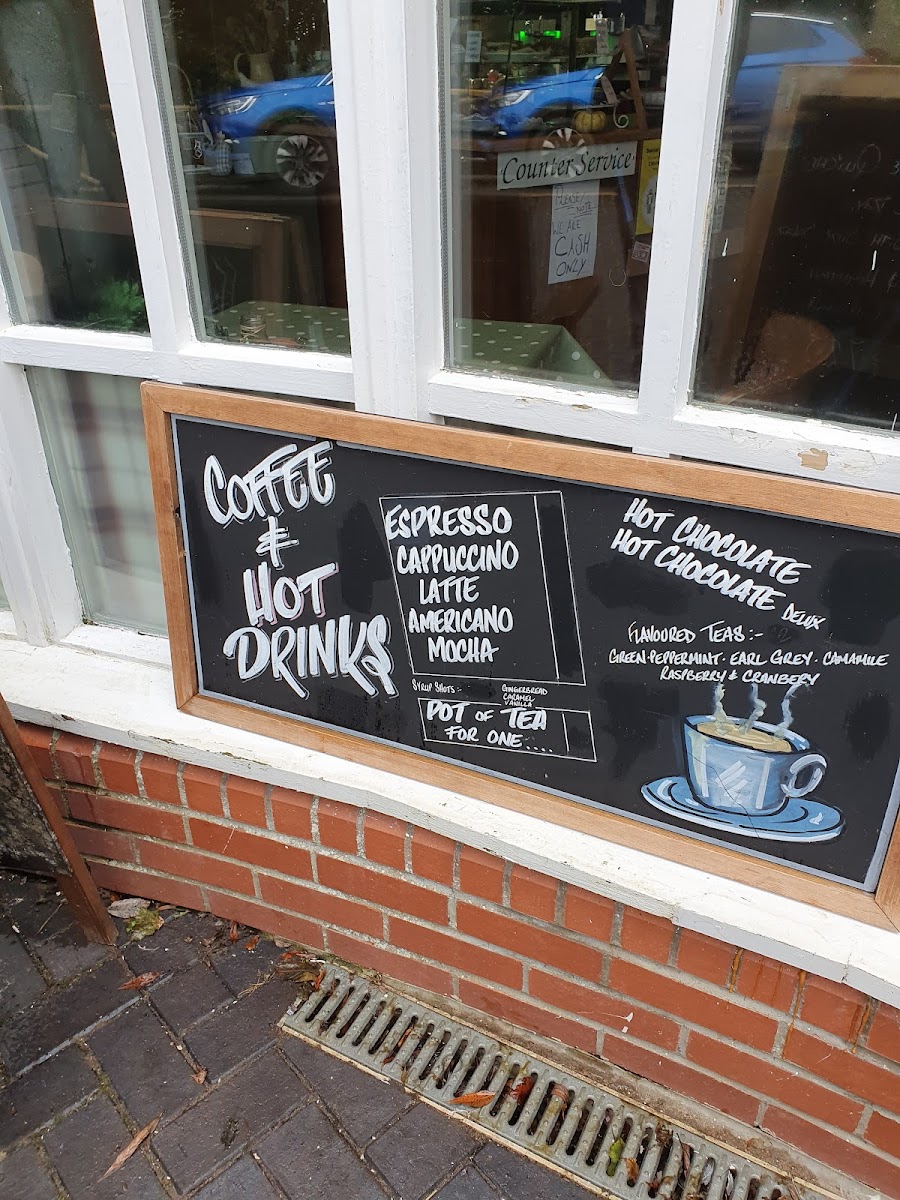 Counter Service
PLEASE
NOTE
WE ARE
CASH
ONLY
COFFEE
&
HOT
DRINKS
ESPRESSO
CAPPUCCINO
LATTE
AMERICANO
MOCHA
SYRUP SHOTS :-
GINGERBREAD
CARAMEL
VANILLA
POT OF TEA
FOR ONE....
HOT CHOCOLATE
HOT CHOCOLATE DELUX
FLAVOURED TEAS:-
GREEN·PEPPERMINT·EARL GREY·CAMAMILE
RASPBERY & CRANBERY